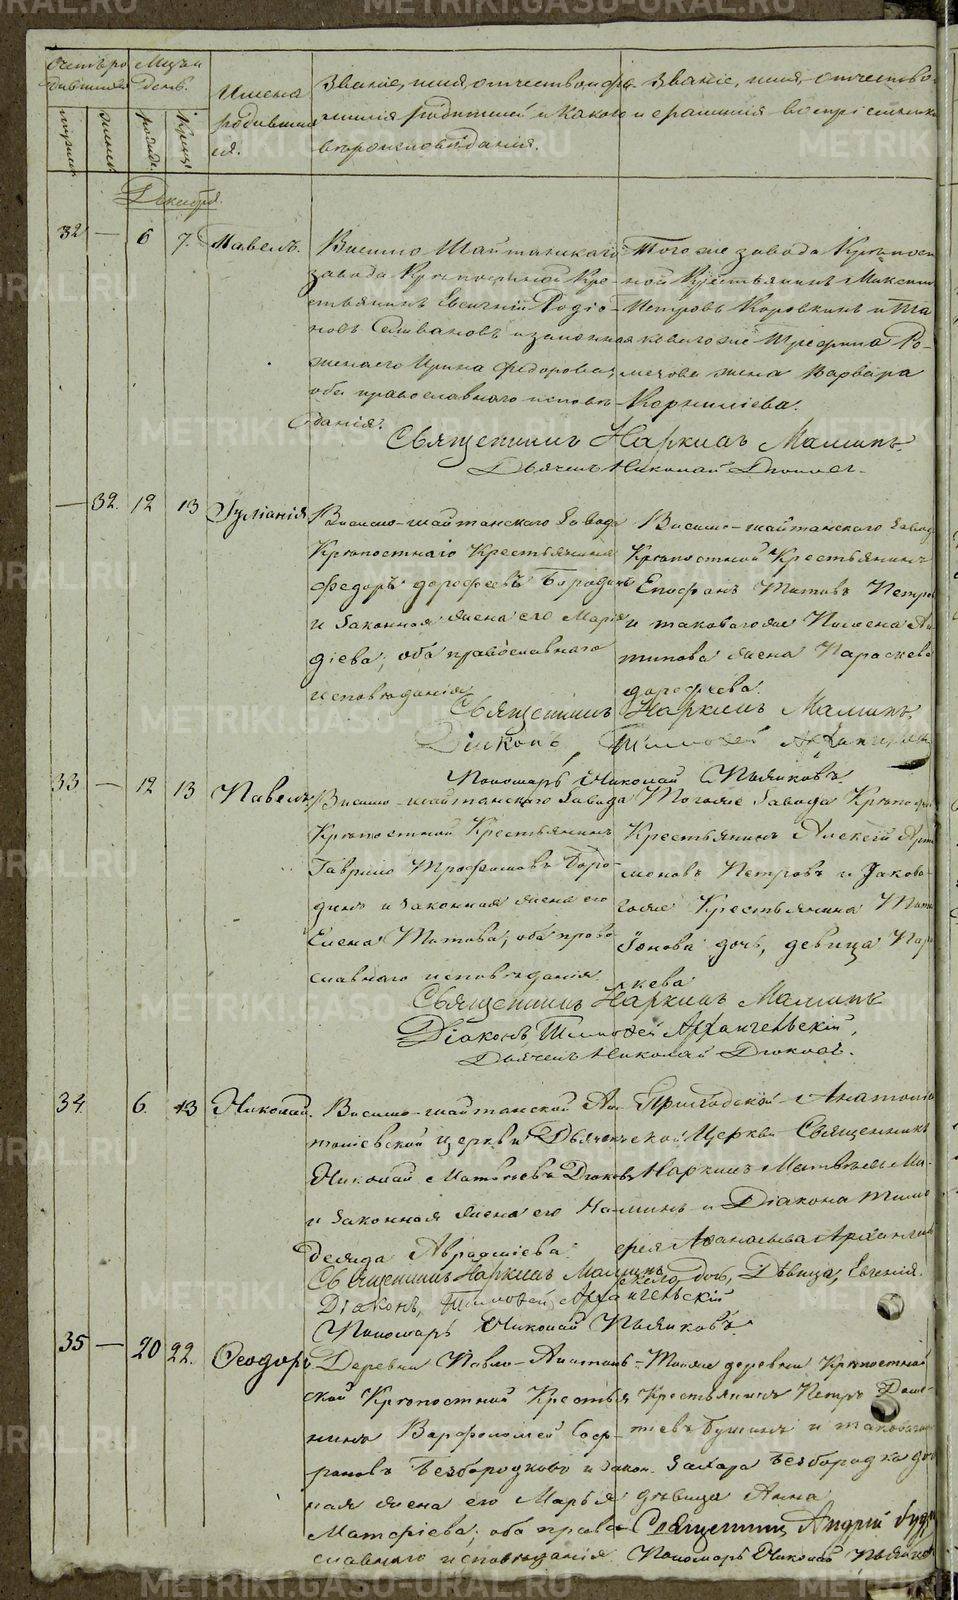 Счетъ ро
дившихся
Мѣсяцъ
день.
Имена
родивших
ся.
Званіе, имя, отчество и фа-
милія родителей и какого
вѣроисповѣданія.
Званіе, имя, отчество
и фамилія воспріемнико
рожден.
Декабрь.
32 — 6 7. Павелъ.
Висимо Шайтанскаго
завода Крѣпостной Кре-
стьянинъ Евсигній Родіо-
новъ Селивановъ и законная
жена его Ирина Федорова,
оба православнаго исповѣ-
данія.
Того же завода Крѣпост
ной Крестьянинъ Максим
Петровъ Коровкинъ и та
коваго же Трефила Ро-
жена Варвара
Корниліева.
Священникъ Наркисъ Маминъ.
Дьячекъ Николай Дюковъ.
— 32. 12 13 Іуліанія
Висимо-шайтанского завода
Крѣпостнаго Крестьянина
Федоръ дорофеевъ Бородинъ
и законная жена его Марія
дієва, оба православнаго
исповѣданія
Висимо-шайтанского завод
Крѣпостной Крестьянинъ
Титовъ Петро
и таковагоже
типова жена Параскева
дорофеева.
Священникъ Наркисъ Маминъ.
Діаконъ, Тимофей Архангельск
Пономарь Николай Пьянковъ
33 — 12 13 Павелъ
Висимо-шайтанского завода
Крѣпостной Крестьянинъ
Гаврило Трофимовъ Боро-
динъ и законная жена его
Елена Титова, оба право-
славнаго исповѣданія
Тогоже завода Крѣпостн
Крестьянинъ Алексѣй Арт
моновъ Петровъ и таково-
гоже Крестьянина Тит
Іонова дочь, девица Пар
скева
Священникъ Наркисъ Маминъ
Діаконъ, Тимофей Архангельскій,
Дьячекъ Николай Дюковъ.
34 6. 13 Николай.
Висимо-шайтанской Ана
толіевской церкви Дьячекъ
Николай Матвѣевъ Дюковъ
и законная жена его На
дежда Авраміева.
Анатоліе
ской Церкви Священникъ
Наркисъ Матвѣевъ Ма-
минъ и Діакона Тимо
фея Аѳанасьева Архангель
скаго дочь, Дѣвица, Евгенія.
Священникъ Наркисъ Маминъ
Діаконъ, Тимофей Архангельскій
Пономарь Николай Пьянковъ.
35 — 20 22. Ѳеодоръ
Деревни Павло-Анатоль-
ской Крѣпостной Крестья
нинъ Варфоломей Соф-
роновъ Безбородково и закон.
ная жена его Марья
Матфіева, оба право-
славнаго исповѣданія
Тояже деревни Крѣпостной
Крестьянинъ Петръ
Бушинъ и таковаго
Захара Безбородка доч
дѣвица Анна
Священникъ Андрей
Пономарь Николай Пьянков
METRIKI.GASO-URAL.RU